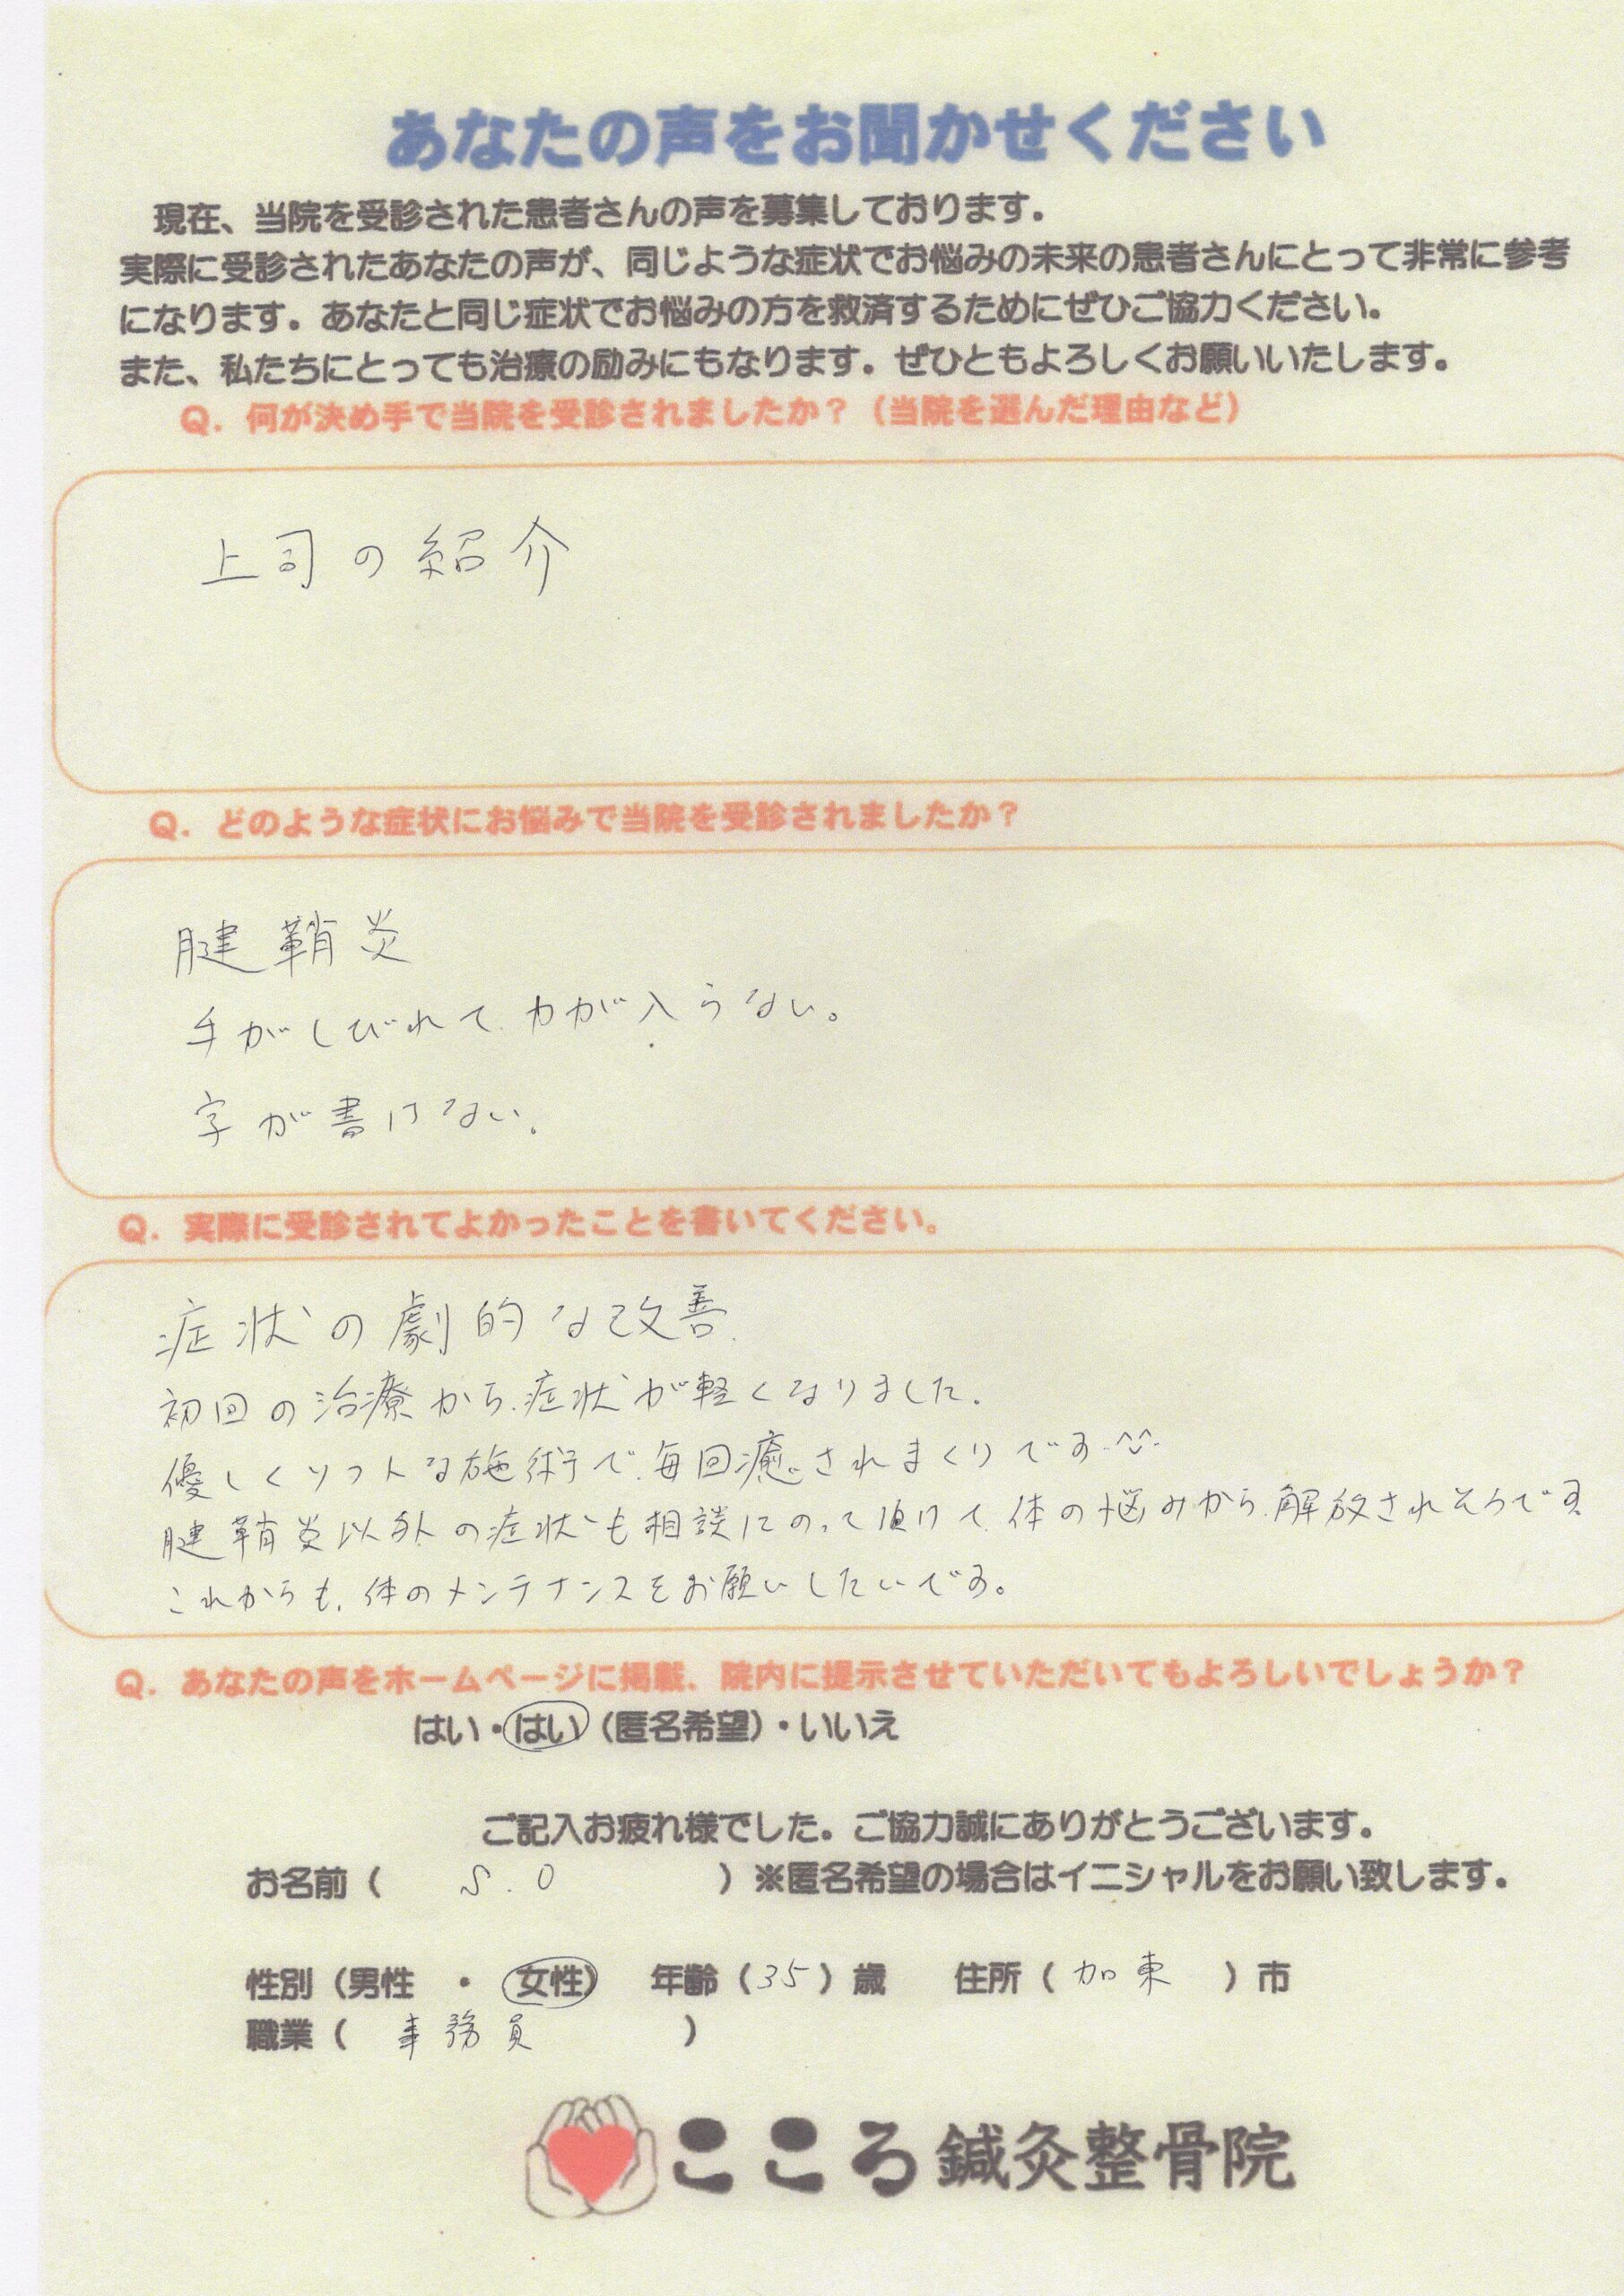 あなたの声をお聞かせください
現在、当院を受診された患者さんの声を募集しております。
実際に受診されたあなたの声が、同じような症状でお悩みの未来の患者さんにとって非常に参考
になります。あなたと同じ症状でお悩みの方を救済するためにぜひご協力ください。
また、私たちにとっても治療の励みにもなります。ぜひともよろしくお願いいたします。
Q. 何が決め手で当院を受診されましたか？（当院を選んだ理由など）
上司の紹介
Q. どのような症状にお悩みで当院を受診されましたか？
腱鞘炎
手がしびれて、力が入らない。
字が書けない。
Q. 実際に受診されてよかったことを書いてください。
症状の劇的な改善.
初回の治療から、症状が軽くなりました.
優しくソフトな施術で、毎回癒されまくりです.^^.
腱鞘炎以外の症状も相談にのって頂けて、体の悩みから、解放されそうです.
これからも、体のメンテナンスをお願いしたいです。
Q. あなたの声をホームページに掲載、院内に提示させていただいてもよろしいでしょうか？
はい・はい（匿名希望）・いいえ
ご記入お疲れ様でした。ご協力誠にありがとうございます。
お名前（ S.O ）※匿名希望の場合はイニシャルをお願い致します。
性別（男性 ・ 女性） 年齢（35）歳 住所（ 加東 ）市
職業（ 事務員 ）
こころ鍼灸整骨院